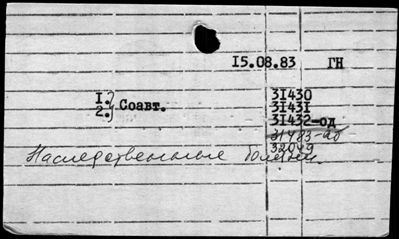 15.08.83 ГН
1.} Соавт.
2.}
31430
31431
31432-од
31483-аб
32049
Наследственные болезни.